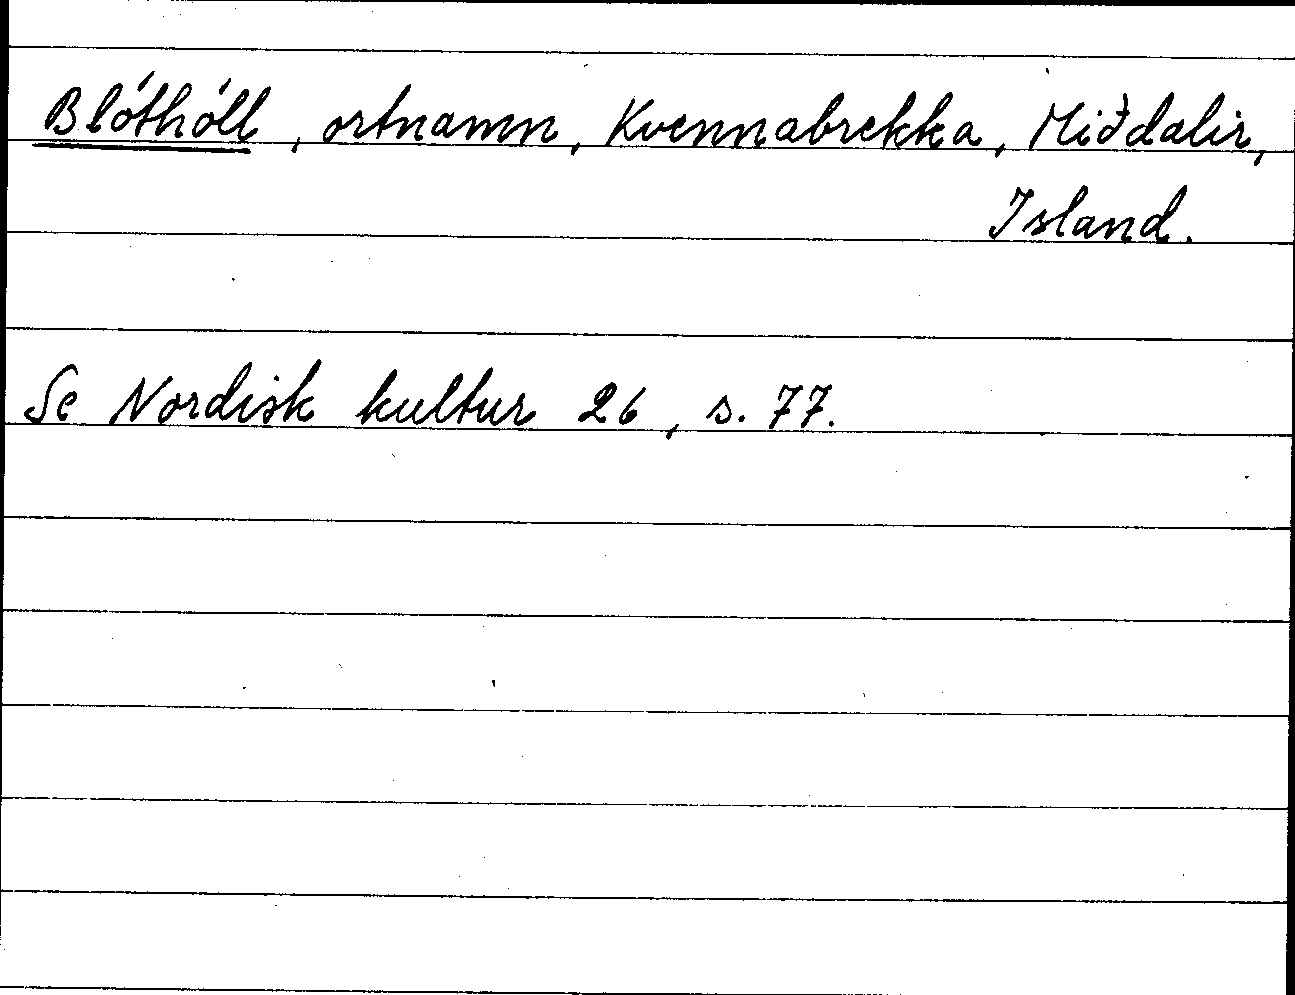 Blóthóll, ortnamn, Kvennabrekka, Miðdalir,
Island.
Se Nordisk kultur 26, s. 77.